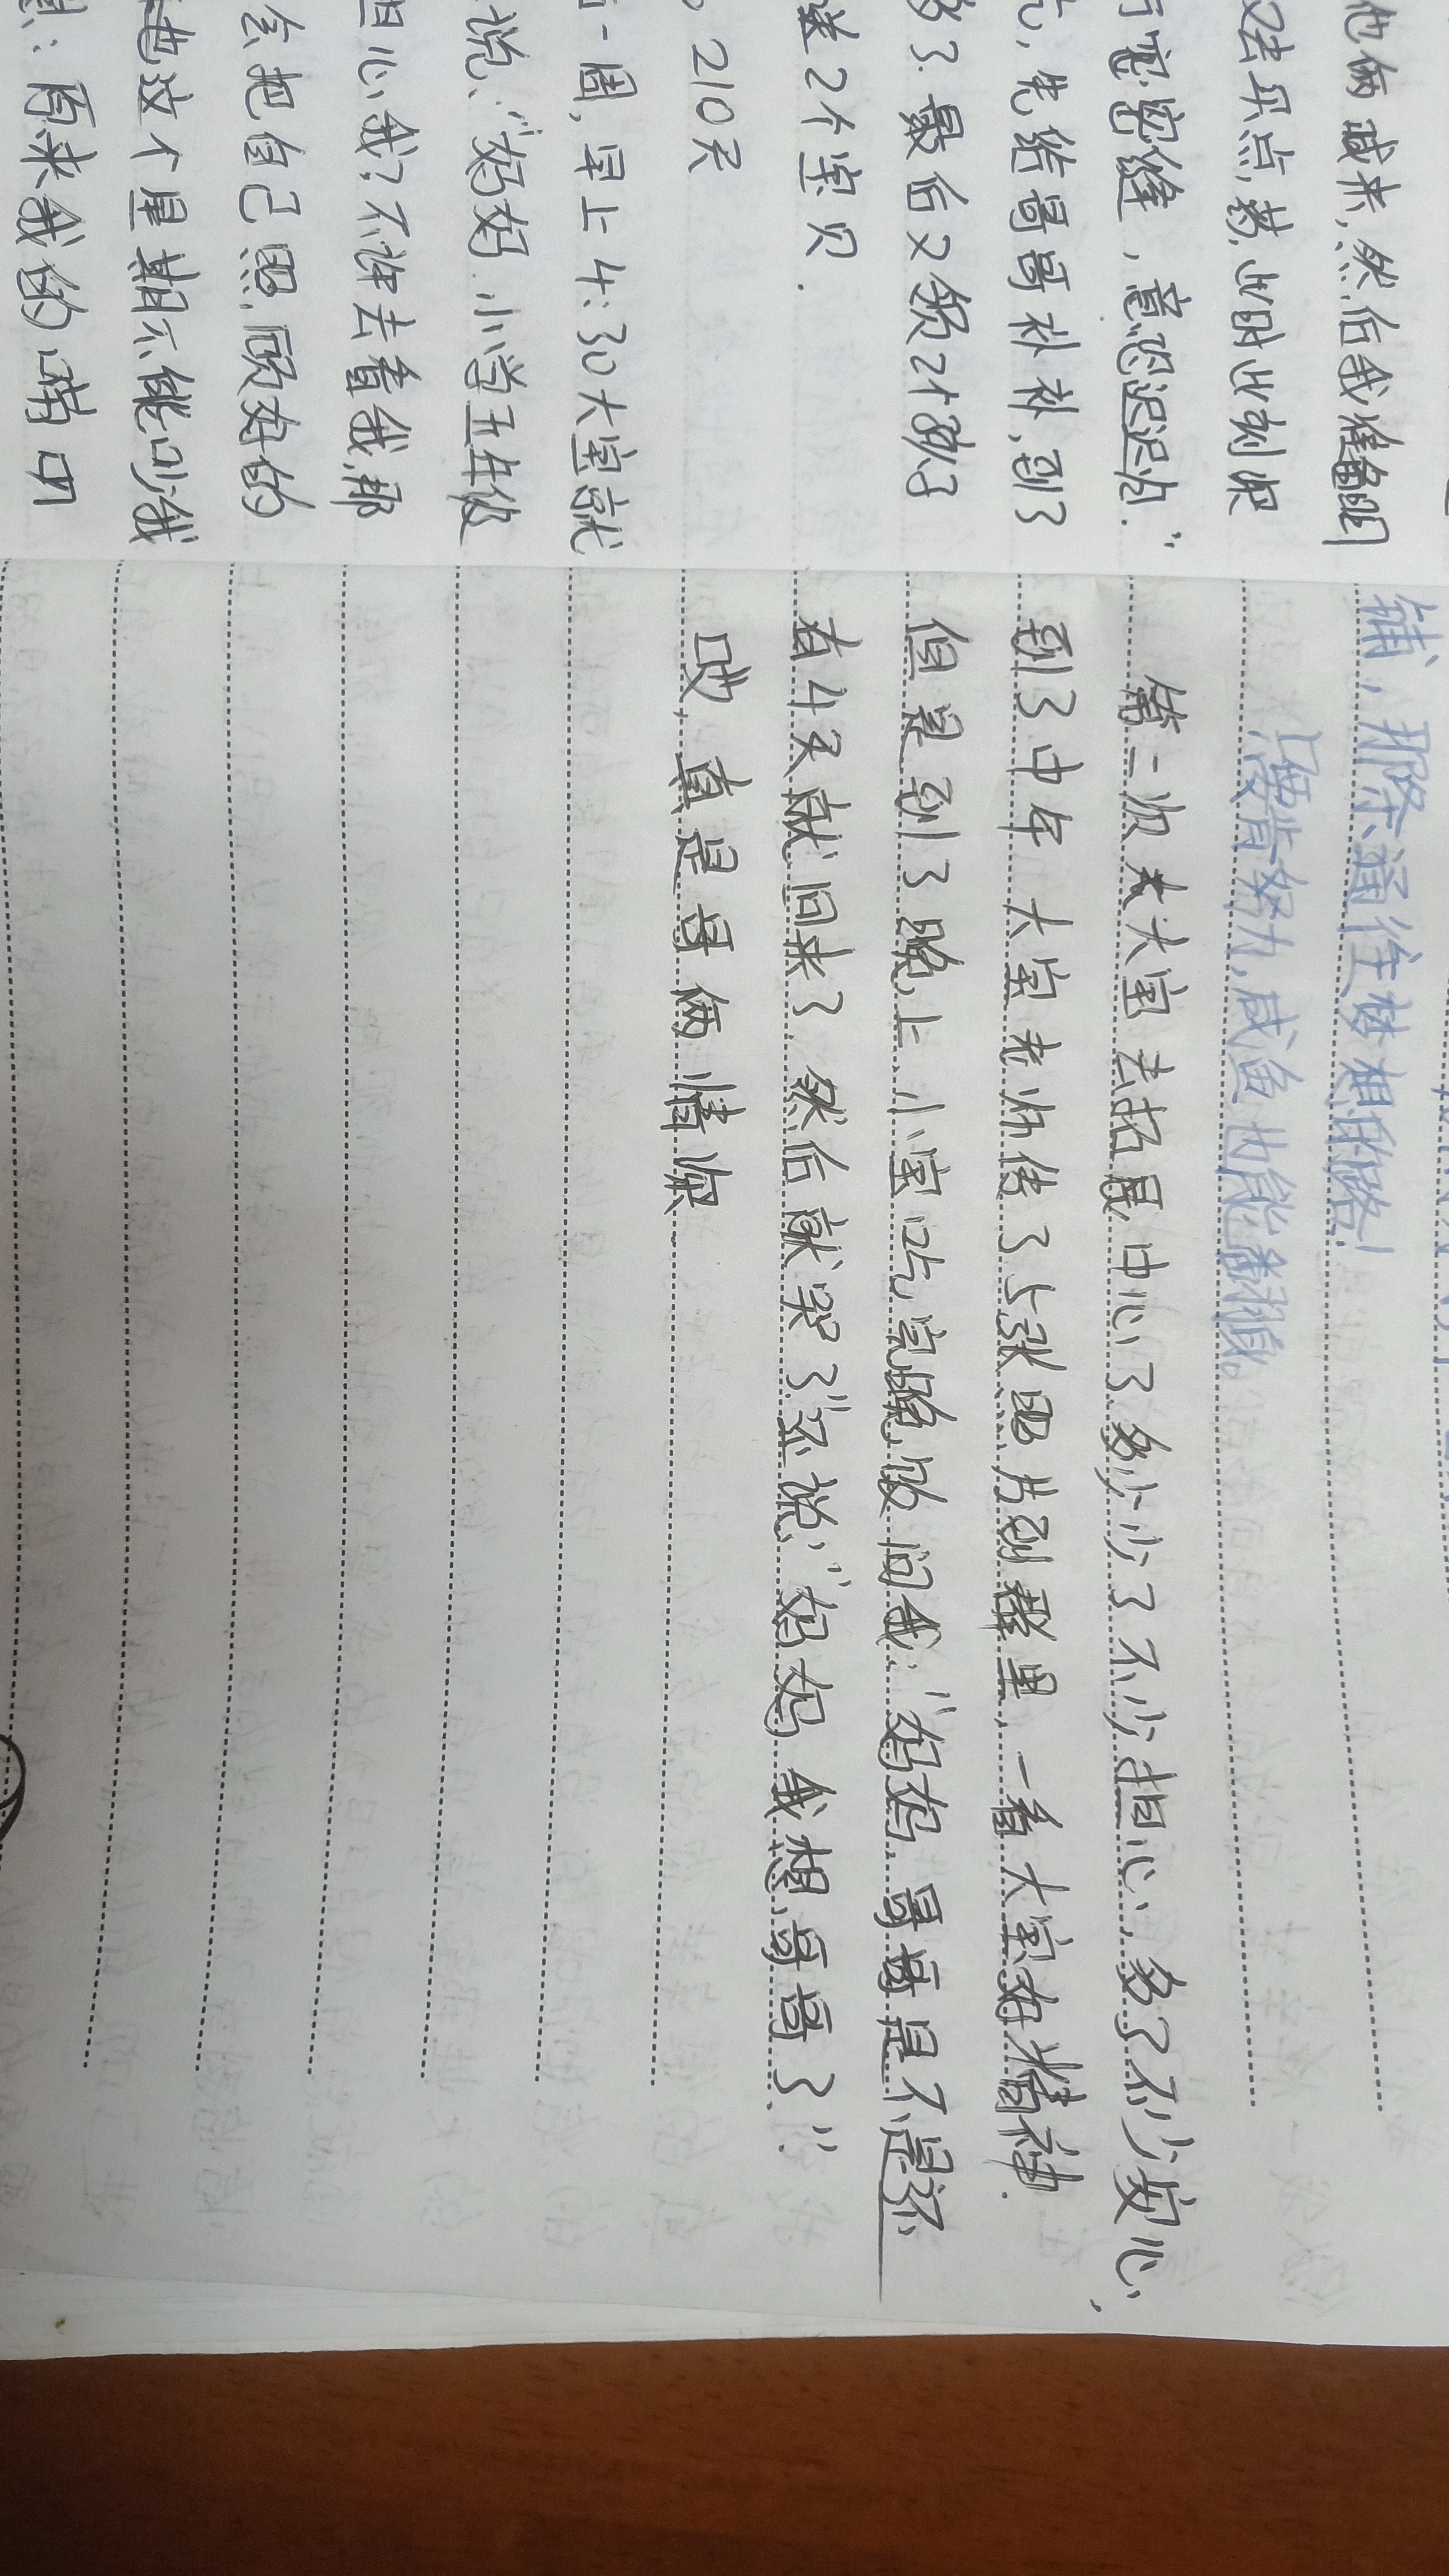 他俩喊来,然后我准备明
又去买点药,此时此刻想
行密密缝,意恐迟迟归."
先给哥哥补补,到了
够了.最后又领2个孩子
送2个宝贝.
210天
一周,早上4:30大宝就
说:"妈妈.小学五年级
担心我?不许去看我,那
会把自己照顾好的
他这个星期不能吵我
原来我的啃叨
辅,那条通往梦想的路!
只要肯努力,咸鱼也能翻身。
第二次大宝去拓展中心了多少少了不少担心,多了不少安心,
到了中午大宝老师传了5张照片到群里,一看大宝好精神.
但是到了晚上,小宝吃完晚饭问我:"妈妈,哥哥是不是还
有4天就回来了.然后就哭了"还说:"妈妈我想哥哥了."
哎,真是哥俩情深